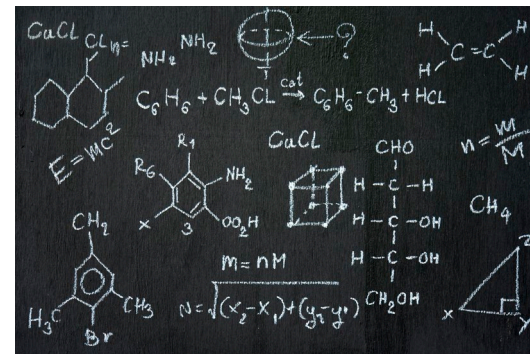 CaCL
CL n=
NH₂ NH₂
?
H H
C=C
H H
C₆H₆ + CH₃CL cat → C₆H₆-CH₃ + HCL
E=mc²
R₁
R₆
NH₂
X
3
OO₂H
CaCL
CHO
H-C-H
H-C-OH
H-C-OH
CH₂OH
n = m/M
CH₄
CH₂
H₃C
CH₃
Br
m=nM
N=√(x₂-x₁)+(y₂-y¹)
Z
X
Y